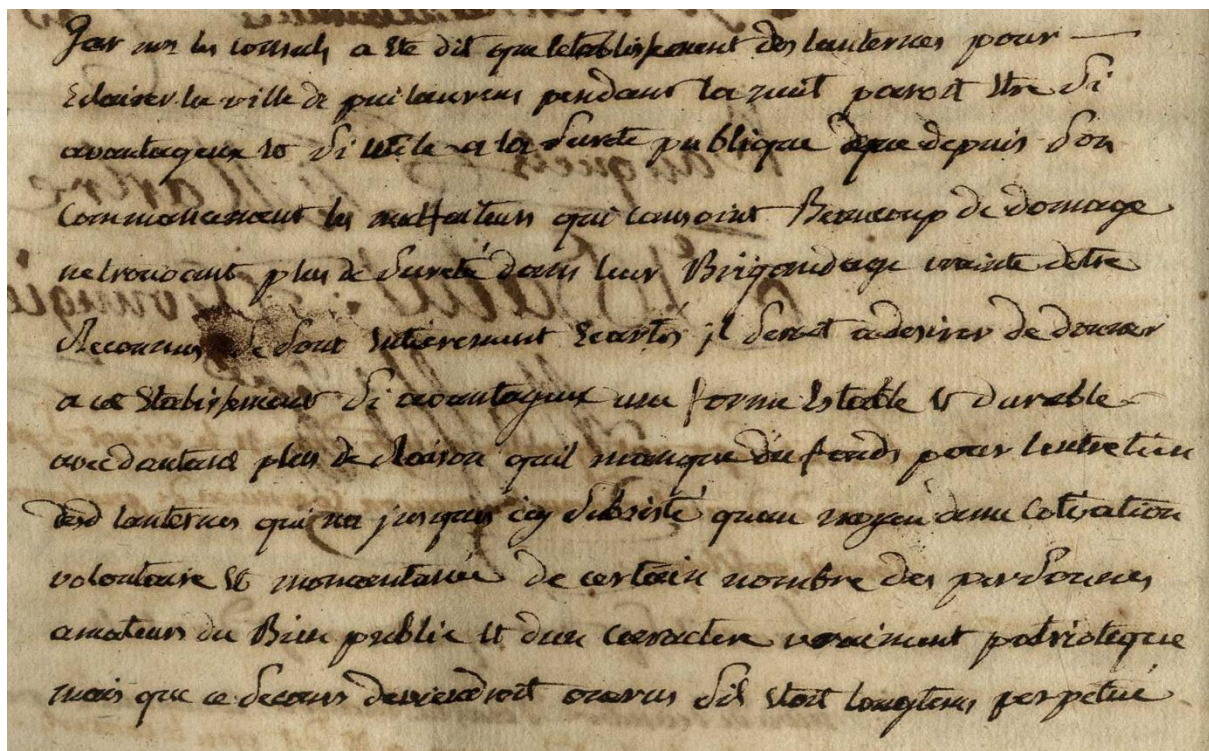 Par nos srs consuls a ete dit que letablissement des lanternes pour
Eclairer la ville de puilaurens pendant la nuit paroit Etre si
avantageux et si utile a la surete publique que depuis son
Commancement les malfaiteurs qui causoint Beaucoup de domage
ne trouvant plus de sureté dans leur Brigandage crainte detre
Reconnus se sont Entierement Ecartés il seroit a desirer de donner
a cet Etablissement si avantageux une forme Estable et durable
avec dautant plus de Raison quil manque du fonds pour lentretien
desd lanternes qui na jusques icy subsisté quau moyen dune Cotisation
volontaire et momantanée de certain nombre des personnes
amateurs du Bien public et dun Caractere vraiment patriotique
mais que ce secours deviendroit onereus sil etoit longtems perpetué